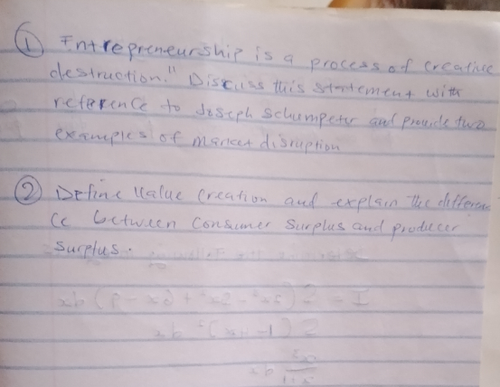 ① Entrepreneurship is a process of creative
destruction." Discuss this statement with
reference to Joseph Schumpeter and provide two
examples of market disruption
② Define Value Creation and explain the differen
ce between Consumer Surplus and producer
surplus.